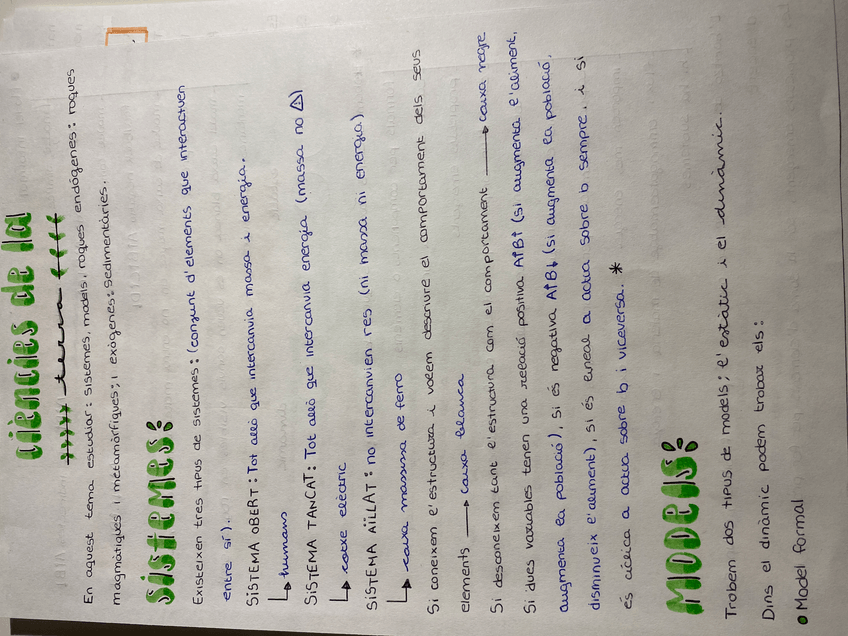 ciències de la
terra
En aquest tema estudiar: sistemes, models, roques endògenes: roques
magmàtiques i metamòrfiques; i exògenes: sedimentàries.
Sistemes:
Existeixen tres tipus de sistemes: (conjunt d'elements que interactuen
entre sí).
SiSTEMA OBERT: Tot allò que intercanvia massa i energia.
↳ humans
SiSTEMA TANCAT: Tot allò que intercanvia energia (massa no ⚠)
↳ cotxe elèctric
SiSTEMA AïLLAT: no intercanvien res (ni massa ni energia)
↳ caixa massissa de ferro
Si coneixem l'estructura i volem descriure el comportament dels seus
elements → caixa blanca
Si desconeixem tant l'estructura com el comportament → caixa negre
Si dues variables tenen una relació positiva A↑B↑ (si augmenta l'aliment,
augmenta la població), si és negativa A↑B↓ (si augmenta la població,
disminueix l'aliment), si és lineal a actua sobre b sempre, i si
és cíclica a actua sobre b i viceversa. *
MODELS:
Trobem dos tipus de models; l'estàtic i el dinàmic.
Dins el dinàmic podem trobar els:
• Model formal